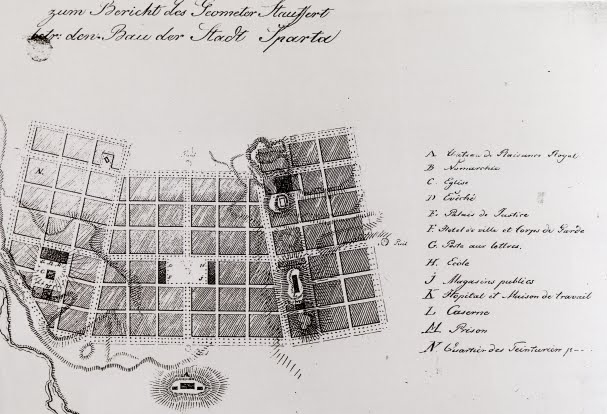 zum Bericht des Geometer Stauffert
betr: den Bau der Stadt Sparta
A Chateau de Plaisance Royal
B Nomarchie
C Eglise
D Evêché
E. Palais de Justice
F. Hotel de ville et Corps de Garde
G. Poste aux lettres.
H. Ecole
J Magasins publics
K Hôpital et Maison de travail
L. Caserne
M. Prison
N. Quartier des Teinturiers
N.